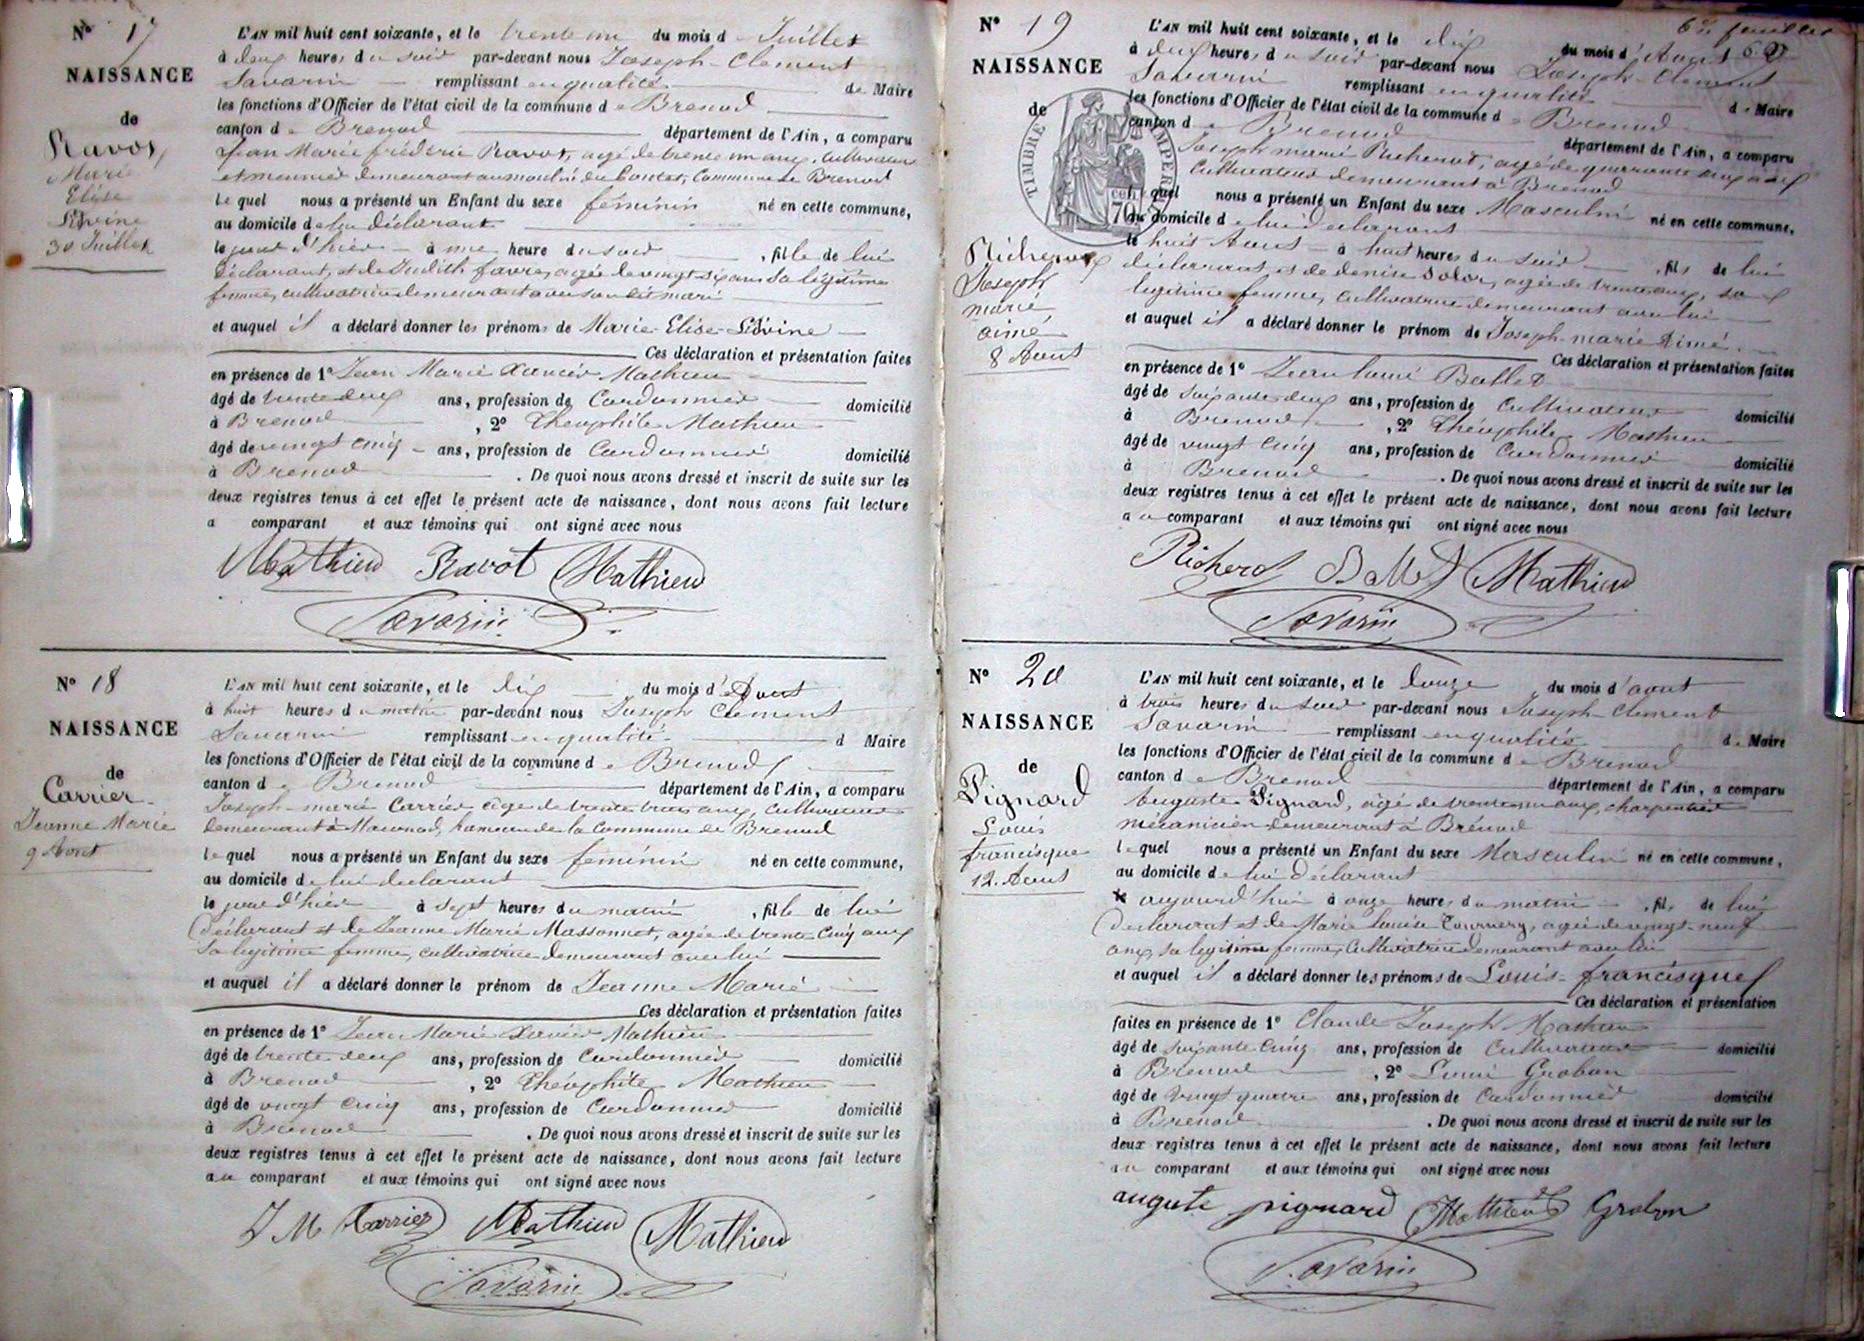 N° 17
NAISSANCE
de
Ravot
Marie
Elise
30 Juillet
L'AN mil huit cent soixante, et le trente un du mois d Juillet
à deux heures du soir par-devant nous Joseph-Clément
Savarin remplissant en qualité de Maire
les fonctions d'Officier de l'état civil de la commune de Brenod
canton de Brenod département de l'Ain, a comparu
Jean Marie frédéric Ravot, agé de trente un ans, Cultivateur
et meunier demeurant au moulin du Pontet, Commune de Brenod
lequel nous a présenté un Enfant du sexe féminin né en cette commune,
au domicile de lui déclarant
le jour d'hier à une heure du soir, fille de lui
déclarant, et de Judith favre, agée de vingt six ans sa légitime
femme, cultivatrice demeurant avec son dit mari
et auquel il a déclaré donner les prénoms de Marie-Elise-
Ces déclaration et présentation faites
en présence de 1° Jean Marie Xavier Mathieu
âgé de trente deux ans, profession de Cordonnier domicilié
à Brenod, 2° Théophile Mathieu
âgé de vingt cinq ans, profession de Cordonnier domicilié
à Brenod. De quoi nous avons dressé et inscrit de suite sur les
deux registres tenus à cet effet le présent acte de naissance, dont nous avons fait lecture
a comparant et aux témoins qui ont signé avec nous
Mathieu Ravot Mathieu
Savarin
N° 18
NAISSANCE
de
Carrier
Jeanne Marie
9 Aout
L'AN mil huit cent soixante, et le dix du mois d'Aout
à huit heures du matin par-devant nous Joseph Clément
Savarin remplissant en qualité d Maire
les fonctions d'Officier de l'état civil de la commune de Brenod
canton de Brenod département de l'Ain, a comparu
Joseph-marie Carrier âgé de trente trois ans, Cultivateur
demeurant à Macconod, hameau de la Commune de Brenod
lequel nous a présenté un Enfant du sexe féminin né en cette commune,
au domicile de lui déclarant
le jour d'hier à sept heures du matin, fille de lui
déclarant et de Jeanne Marie Massonnet, agée de trente Cinq ans
sa légitime femme, cultivatrice demeurant avec lui
et auquel il a déclaré donner le prénom de Jeanne Marie
Ces déclaration et présentation faites
en présence de 1° Jean Marie Xavier Mathieu
âgé de trente deux ans, profession de Cordonnier domicilié
à Brenod, 2° Théophile Mathieu
âgé de vingt cinq ans, profession de Cordonnier domicilié
à Brenod. De quoi nous avons dressé et inscrit de suite sur les
deux registres tenus à cet effet le présent acte de naissance, dont nous avons fait lecture
au comparant et aux témoins qui ont signé avec nous
J M Carrier Mathieu Mathieu
Savarin
N° 19
NAISSANCE
de
TIMBRE IMPERIAL
70
Richerot
Joseph
marie
aimé
8 Aout
L'AN mil huit cent soixante, et le dix du mois d'Aout
à deux heures du soir par-devant nous Joseph-Clément
Savarin remplissant en qualité de Maire
les fonctions d'Officier de l'état civil de la commune de Brenod
canton de Brenod département de l'Ain, a comparu
Joseph marie Richerot, agé de quarante cinq ans
Cultivateur demeurant à Brenod
lequel nous a présenté un Enfant du sexe Masculin né en cette commune,
au domicile de lui déclarant
le huit Aout à huit heures du soir, fils de lui
déclarant, et de denise Odoz, agée de trente ans, sa
legitime femme, cultivatrice demeurant avec lui
et auquel il a déclaré donner le prénom de Joseph-marie Aimé
Ces déclaration et présentation faites
en présence de 1° Jean Ballet
âgé de soixante deux ans, profession de cultivateur domicilié
à Brenod, 2° Théophile Mathieu
âgé de vingt cinq ans, profession de Cordonnier domicilié
à Brenod. De quoi nous avons dressé et inscrit de suite sur les
deux registres tenus à cet effet le présent acte de naissance, dont nous avons fait lecture
au comparant et aux témoins qui ont signé avec nous
Richerot Ballet Mathieu
Savarin
N° 20
NAISSANCE
de
Pignard
Louis
francisque
12 Aout
L'AN mil huit cent soixante, et le douze du mois d'aout
à trois heures du soir par-devant nous Joseph-Clément
Savarin remplissant en qualité de Maire
les fonctions d'Officier de l'état civil de la commune de Brenod
canton de Brenod département de l'Ain, a comparu
Auguste Pignard, âgé de trente un ans, charpentier
mécanicien demeurant à Brénod
lequel nous a présenté un Enfant du sexe Masculin né en cette commune,
au domicile de lui déclarant
aujourd'hui à onze heures du matin, fils de lui
déclarant et de Marie Louise Tournery, agée de vingt-neuf
ans, sa legitime femme, Cultivatrice demeurant avec lui
et auquel il a déclaré donner les prénoms de Louis-francisque
Ces déclaration et présentation
faites en présence de 1° Claude Joseph Mathieu
âgé de soixante cinq ans, profession de Cultivateur domicilié
à Brenod, 2° Louis Grobon
âgé de vingt quatre ans, profession de Cordonnier domicilié
à Brenod. De quoi nous avons dressé et inscrit de suite sur les
deux registres tenus à cet effet le présent acte de naissance, dont nous avons fait lecture
au comparant et aux témoins qui ont signé avec nous
auguste pignard Mathieu Grobon
Savarin